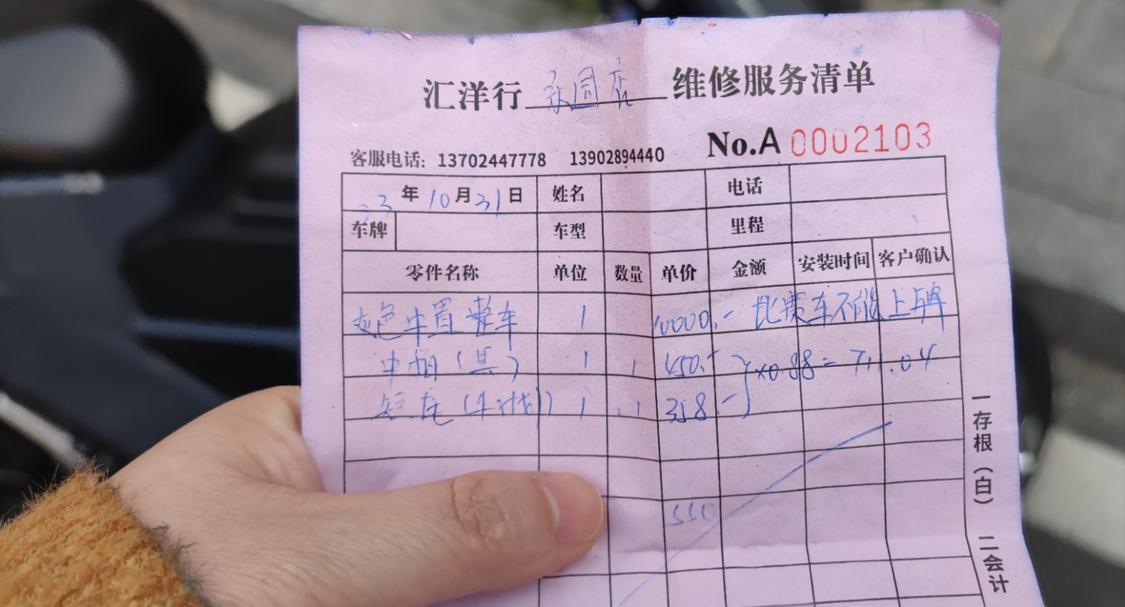 汇洋行 永同店 维修服务清单
No.A 0002103
客服电话：13702447778 13902894440
23 年 10 月 31 日 姓名 电话
车牌 车型 里程
零件名称 单位 数量 单价 金额 安装时间 客户确认
整车 1 10000.- 比赛车不能上牌
中帕（黑） 1 1 450.- }×0.88=711.04
1 1 358.-
550
一存根（白） 二会计